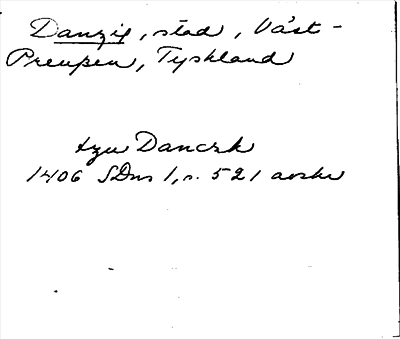 Danzig, stad, Väst-
Preussen, Tyskland
tzu Danczk
1406 SDns 1, s. 521 avskr